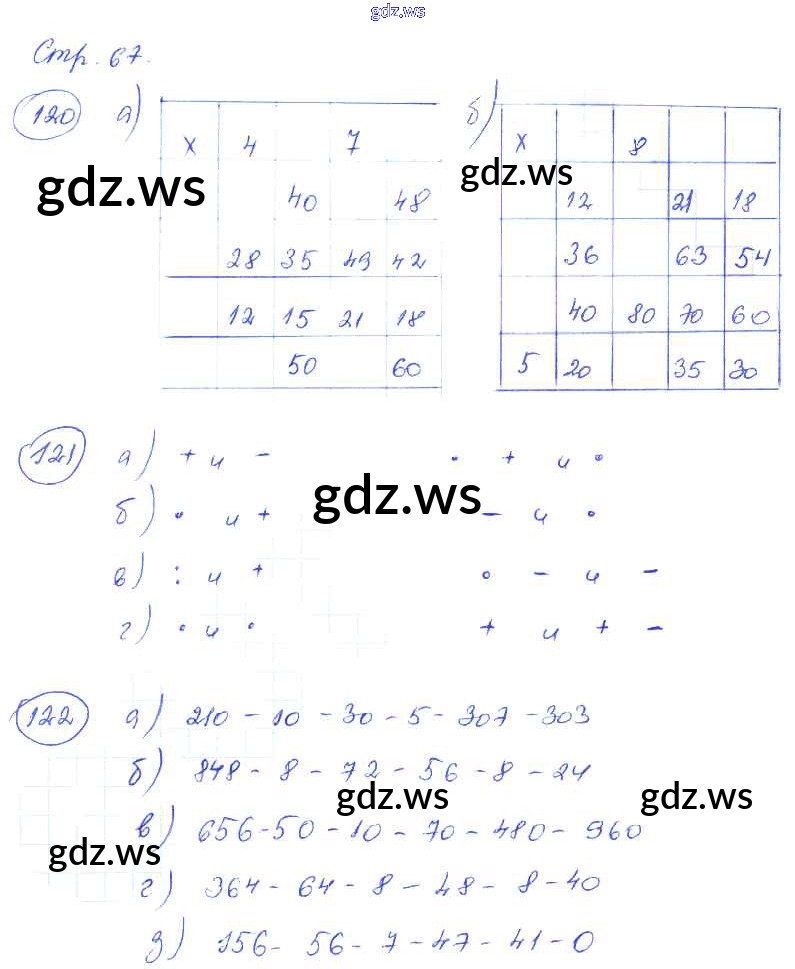 gdz.ws
Стр. 67.
120 а) б)
x 4 7
40 48
28 35 49 42
12 15 21 18
50 60
x 8
12 21 18
36 63 54
40 80 70 60
5 20 35 30
gdz.ws
gdz.ws
121 а) + и - · + и ·
б) · и + - и ·
в) : и + · - и -
г) · и · + и + -
gdz.ws
122 а) 210 - 10 - 30 - 5 - 307 - 303
б) 848 - 8 - 72 - 56 - 8 - 24
в) 656 - 50 - 10 - 70 - 480 - 960
г) 364 - 64 - 8 - 48 - 8 - 40
д) 156 - 56 - 7 - 47 - 41 - 0
gdz.ws
gdz.ws
gdz.ws